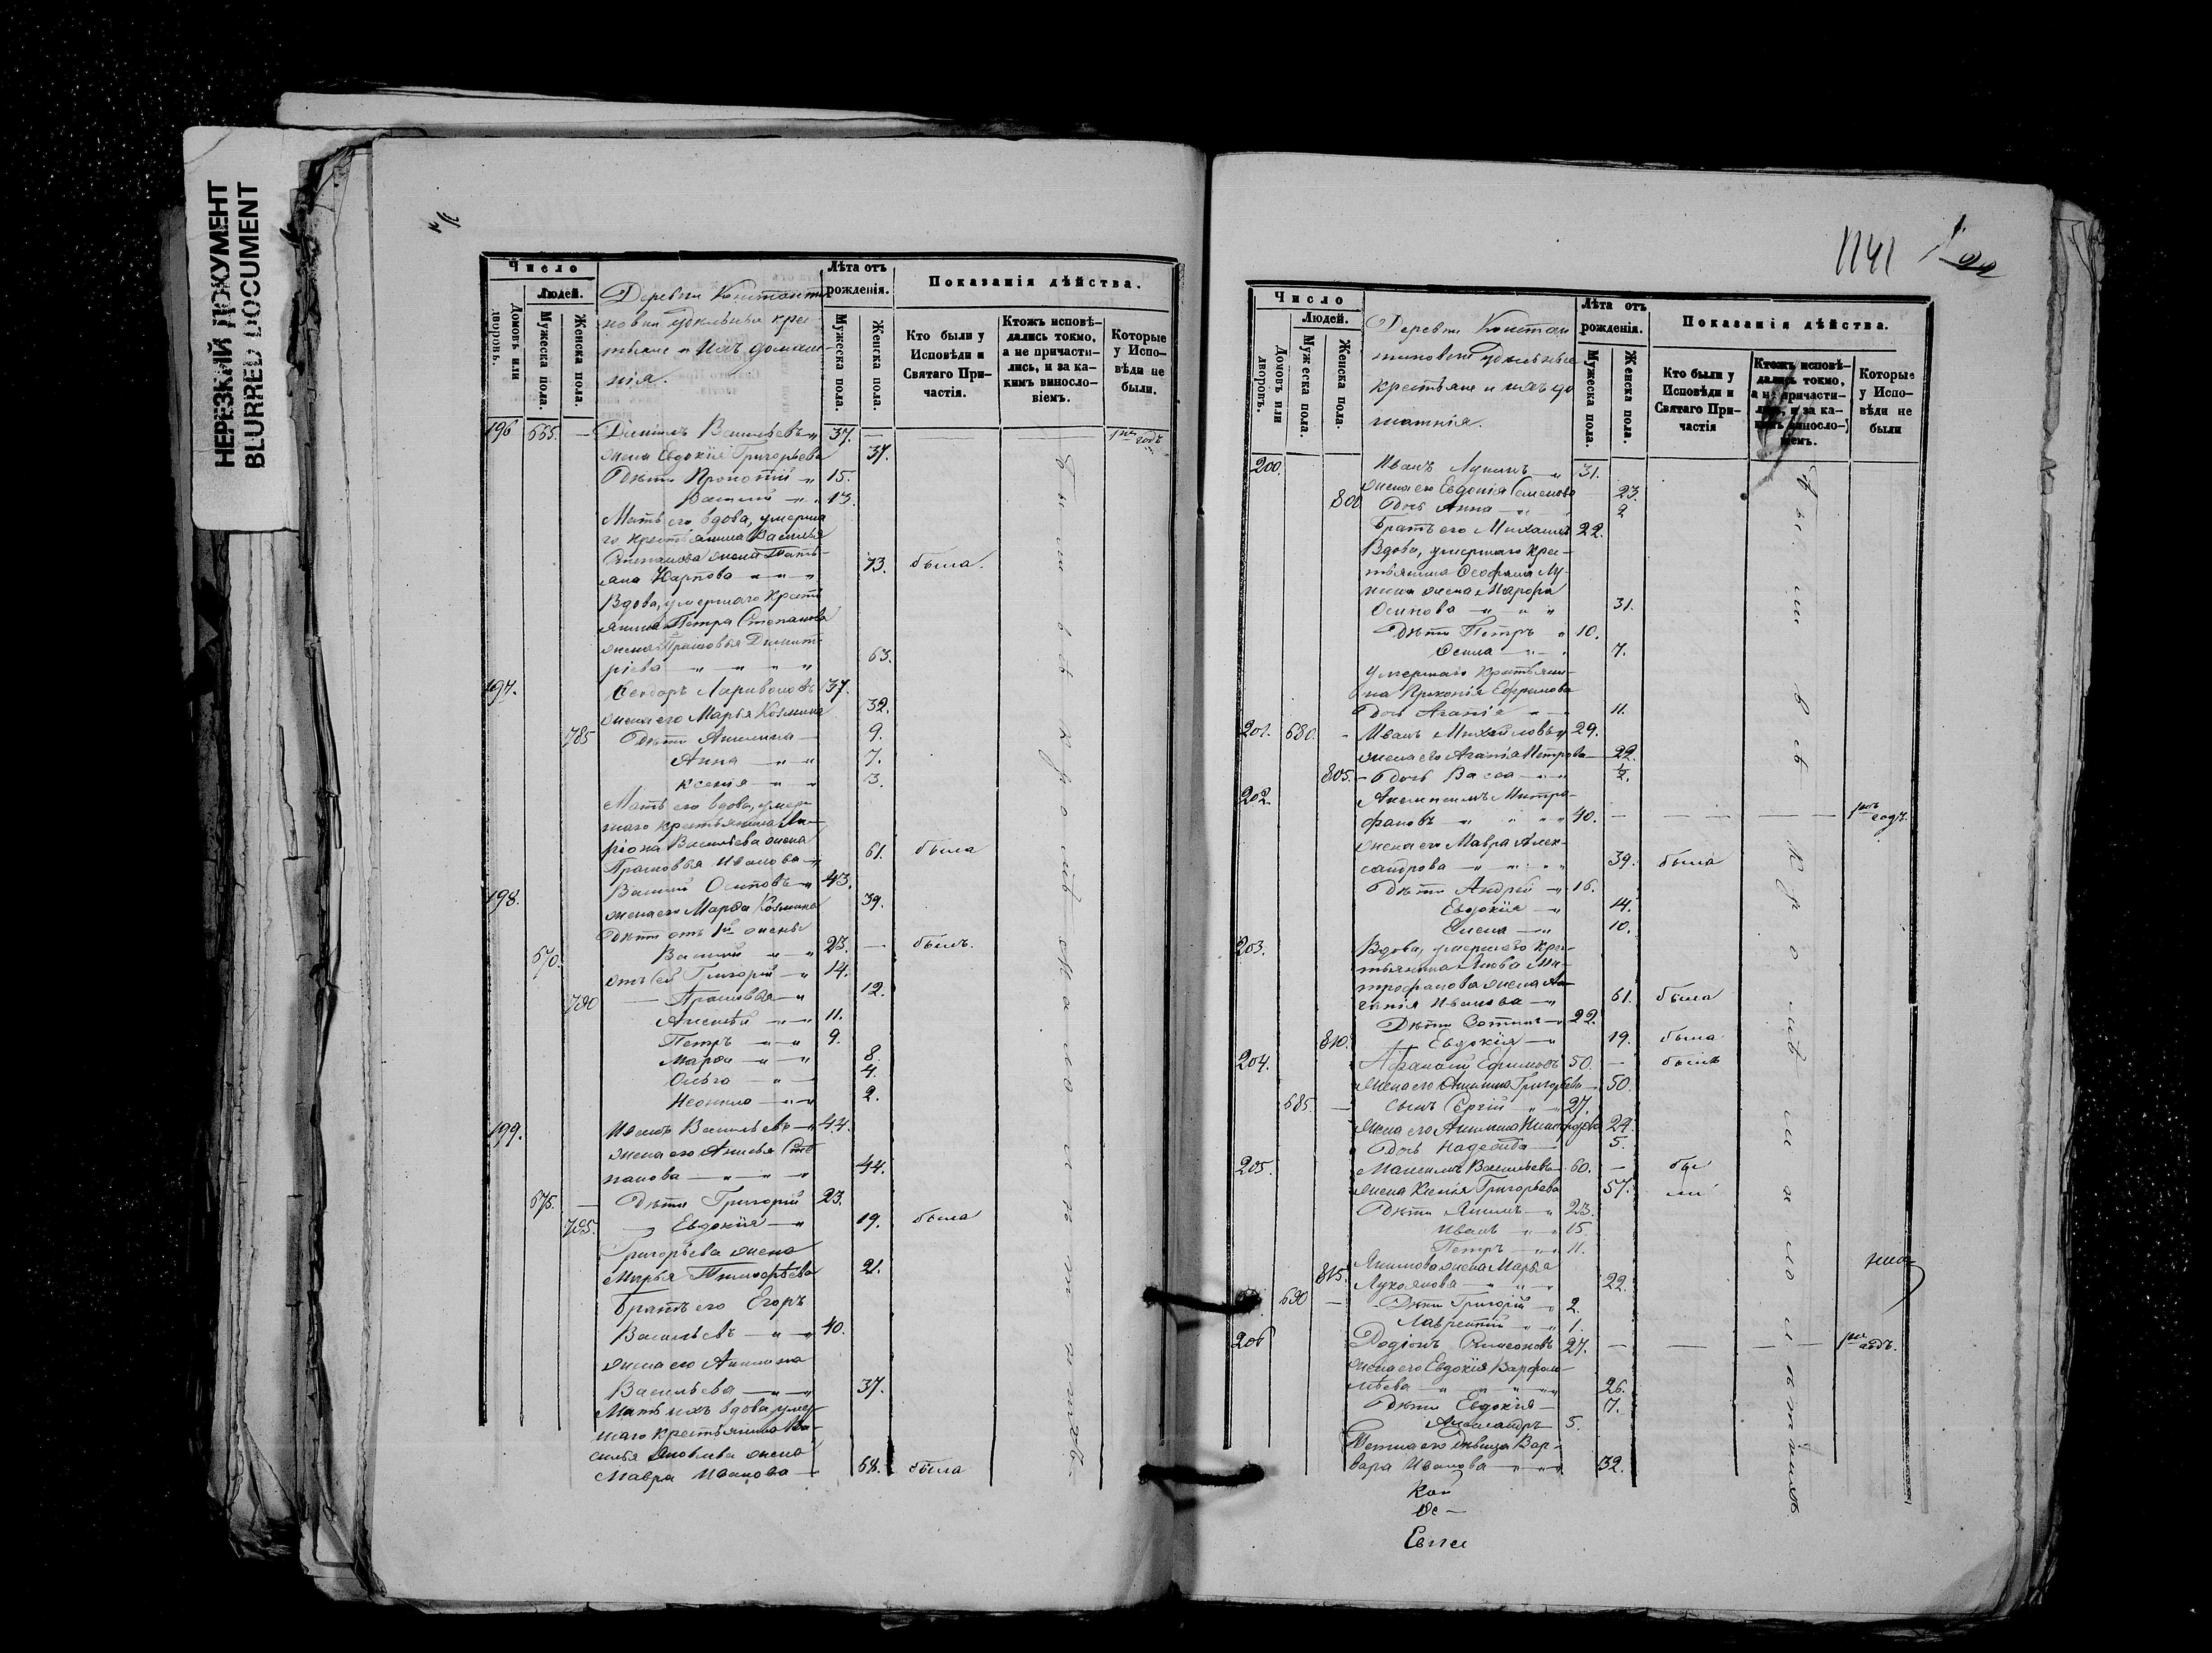 НЕРЕЗКИЙ ДОКУМЕНТ
BLURRED DOCUMENT
Число
Людей.
Домовъ или дворовъ.
Мужеска пола.
Женска пола.
Деревни Константи
новки удѣльные кре-
стьяне и ихъ домаш-
нія.
Лѣта отъ
рожденія.
Мужеска пола.
Женска пола.
Показанія дѣйства.
Кто были у
Исповѣди и
Святаго При-
частія.
Ктожъ исповѣ-
дались токмо,
а не причасти-
лись, и за ка-
кимъ винословіемъ.
Которые
у Испо-
вѣди не
были.
196 Васильевъ 37. — годъ
жена Евдокія Григорьева 37.
Дѣти Прокопій 15.
Василій 13.
Мать его вдова, умерша
го крестьянина Василья
Степанова жена Тать-
яна Карпова 73. была.
Вдова, умершаго кресть
янина Петра Степанова
жена Прасковья Димит-
ріева 63.
197. Ѳеодоръ Ларивоновъ 37.
жена его Марья Козмина 32.
785 Дѣти Акилина 9.
Анна 7.
Ксенія 3.
Мать его вдова, умер-
шаго крестьянина Ла-
ріона Васильева жена
Прасковья Иванова 61. была
198. Василій Осиповъ 43.
жена его Марѳа Козмина 39.
Дѣти отъ 1й жены
670. Василій 23. — былъ.
отъ сей Григорій 14.
790 Прасковья 12.
Алексѣй 11.
Петръ 9.
Марѳа 8.
Ольга 4.
Неонила 2.
199. Иванъ Васильевъ 44.
жена его Анисья Сте
панова 44.
675. — Дѣти Григорій 23.
795. Евдокія 19. была
Григорьева жена
Марья Тимоѳеева 21.
Братъ его Егоръ
Васильевъ 40.
жена его Акилина
Васильева 37.
Мать ихъ вдова, умер
шаго крестьянина Ва-
силья Яковлева жена
Мавра Иванова 68. была
Были всѣ кромѣ
1141
Число
Людей.
Домовъ или дворовъ.
Мужеска пола.
Женска пола.
Деревни Констан
тиновки Удѣльные
крестьяне и ихъ до
машнія.
Лѣта отъ
рожденія.
Мужеска пола.
Женска пола.
Показанія дѣйства.
Кто были у
Исповѣди и
Святаго При-
частія
Ктожъ исповѣ-
дались токмо,
а не причасти-
лись, и за ка-
кимъ винословіемъ.
Которые
у Испо-
вѣди не
были
200. Иванъ Лукинъ 31.
жена его Евдокія Семенова 23.
800 Дочь Анна 2
Братъ его Михаилъ 22.
Вдова, умершаго кре-
стьянина Ѳеофана Лу-
кина жена Марѳа
Осипова 31.
Дѣти Петръ 10.
7.
Умершаго крестьяни-
на Прокопія Ефимова
Дочь Агапія 11.
201. 680. - Иванъ Михайловъ 29.
жена его Агапія Петрова 22.
805. - Дочь Васса 1/2.
202. Митро-
фановъ 40. — — — — годъ.
жена его Мавра Алек-
сандрова 39. была
Дѣти Андрей 16.
Евдокія 14.
Елена 10.
203. Вдова, умершаго кре-
стьянина Якова Ми-
трофанова жена Ага-
пія Иванова 61. была
Дѣти 22.
810. Евдокія 19. была
204. Афанасій Ефимовъ 50. — былъ
жена его Акилина Григорьева 50.
685. — Сынъ Сергій 27.
жена его Акилина Никифорова 24.
Дочь Надежда 5.
205. Максимъ Васильевъ 60. — бы
жена Ксенія Григорьева 57. ли
Дѣти Якимъ 23.
Иванъ 15.
Петръ 11.
815. Якимова жена Марья
Лукоянова 22.
690 — Дѣти Григорій 2.
Лаврентій 1.
206 Родіонъ Симеоновъ 27. — — — годъ.
жена его Евдокія Варфоло-
мѣева 26.
Дѣти Евдокія 7.
Александръ 5.
Тетка его Дѣвица Вар-
вара Иванова 32.
Были всѣ кромѣ